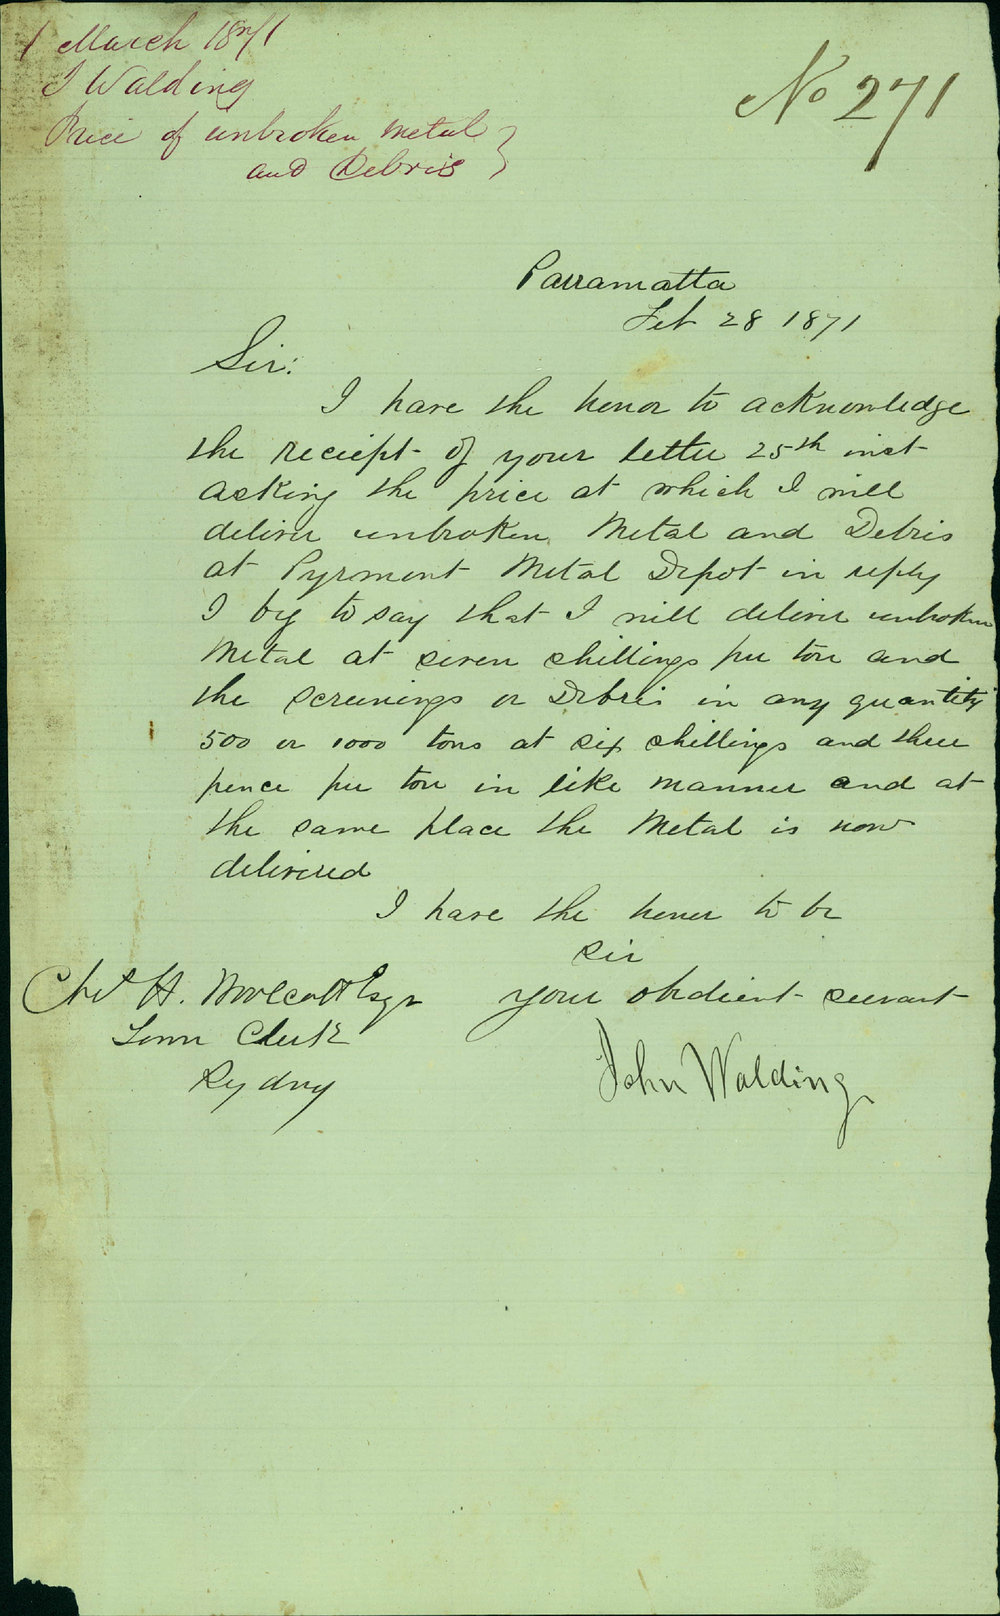 1 March 1871
J Walding
Price of unbroken metal
and Debris
No 271
Parramatta
Feb 28 1871
Sir:
I have the honor to acknowledge
the reciept of your letter 25th inst
asking the price at which I will
deliver unbroken Metal and Debris
at Pyrmont Metal Depot in reply
I beg to say that I will deliver unbroken
Metal at seven shillings per ton and
the screenings or Debris in any quantity
500 or 1000 tons at six shillings and three
pence per ton in like manner and at
the same place the Metal is now
delivered
I have the honor to be
Sir
your obedient servant
John Walding
Chs H. Woolcott Esqr
Town Clerk
Sydney